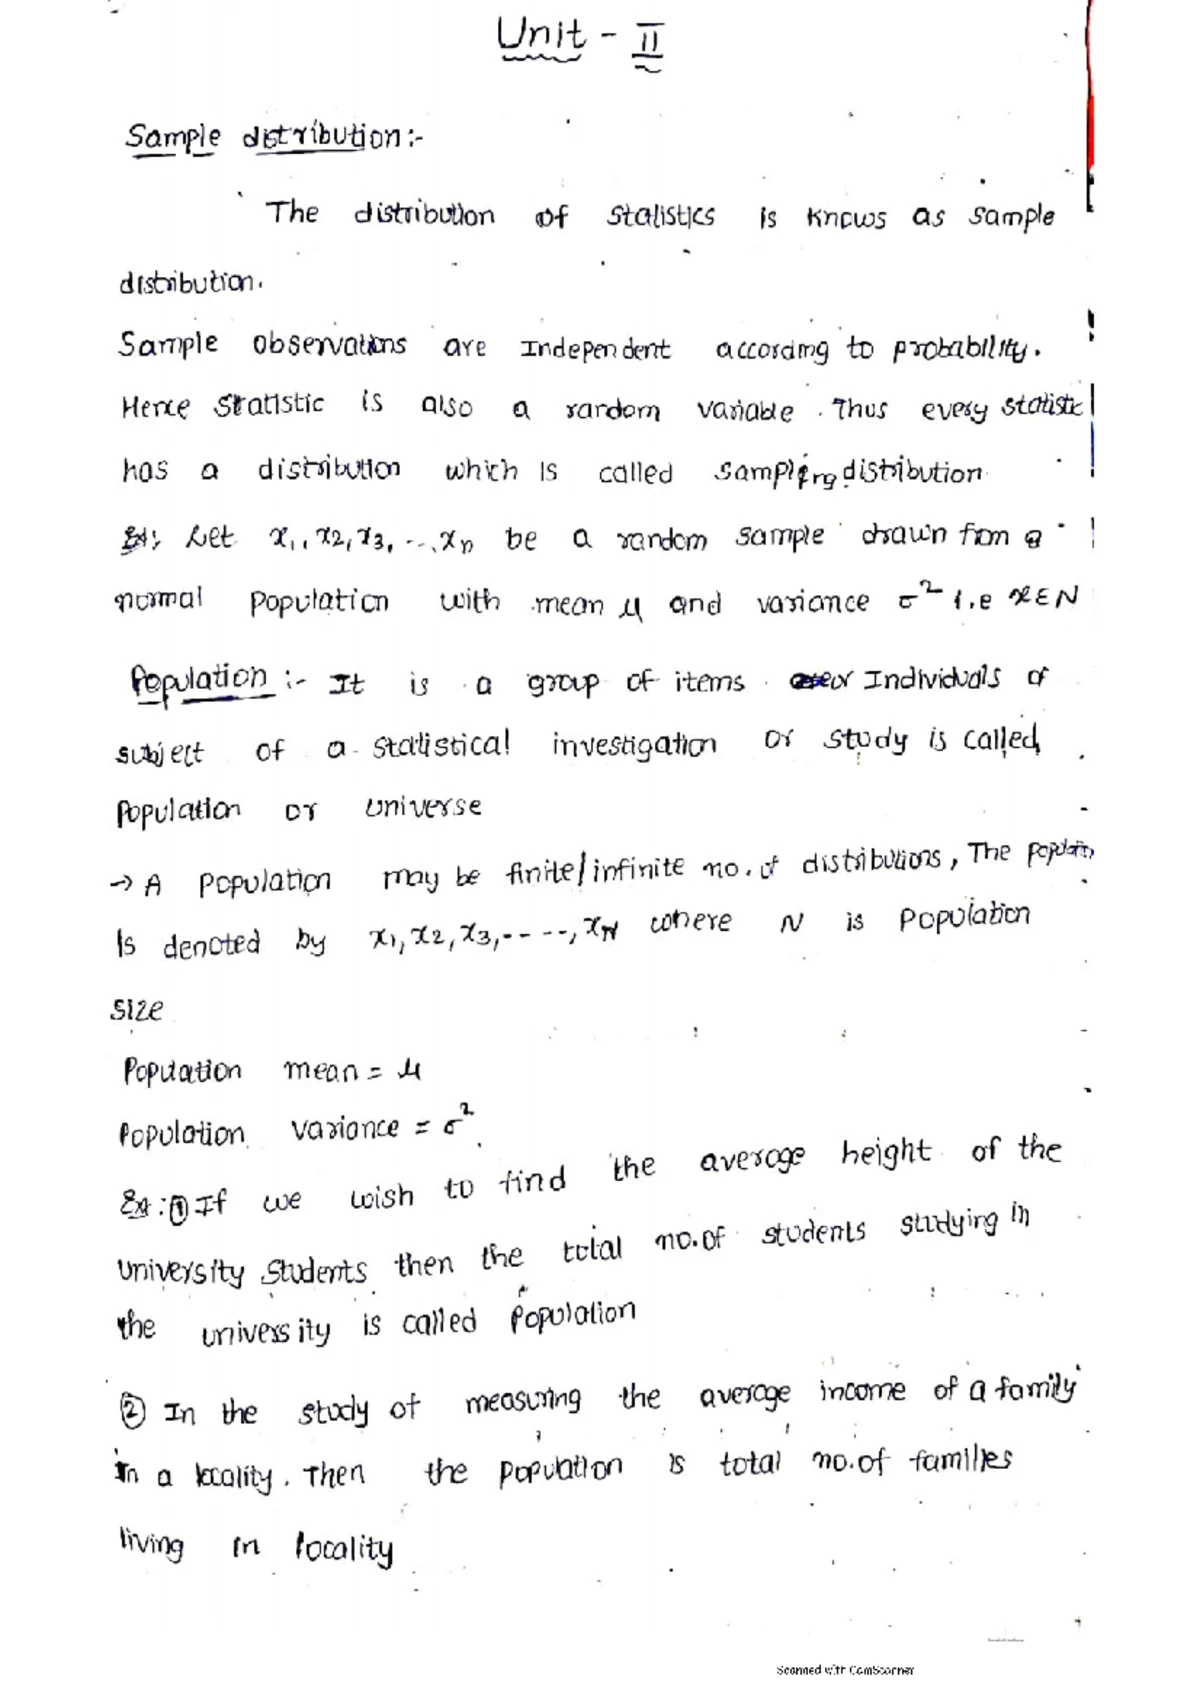 Unit - II
Sample distribution:-
The distribution of statistics is knows as sample
distribution.
Sample observations are Independent according to probability.
Hence Statistic is also a random variable. Thus every statistic
has a distribution which is called sampling distribution
Ex: Let x₁, x₂, x₃, ..., xₙ be a random sample drawn from a
normal population with mean μ and variance σ² i.e x∈N
Population :- It is a group of items or Individuals of
subject of a statistical investigation or study is called
population or universe
→ A population may be finite/infinite no. of distributions, The populatn
Is denoted by x₁, x₂, x₃, ------, x_N where N is population
size
Population mean = μ
Population variance = σ².
Ex: ① If we wish to find the average height of the
university students then the total no. of students studying in
the university is called population
② In the study of measuring the average income of a family
In a locality. Then the population is total no. of families
living in locality
Scanned with CamScanner